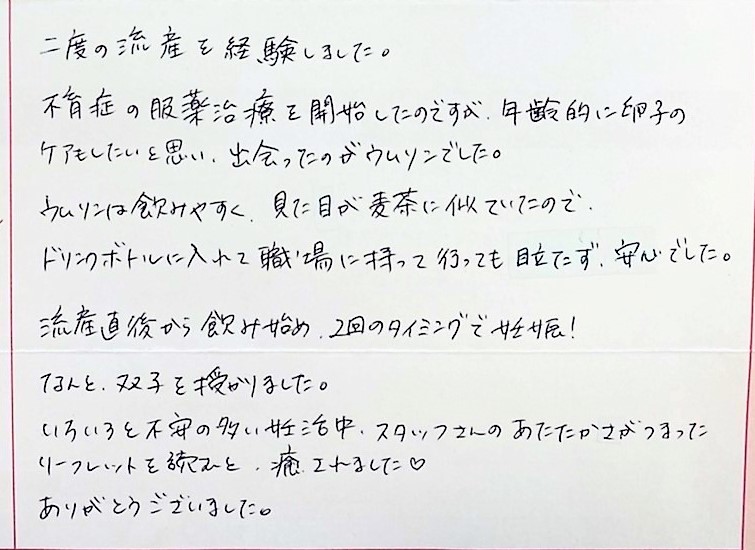 二度の流産を経験しました。
不育症の服薬治療を開始したのですが、年齢的に卵子の
ケアもしたいと思い、出会ったのがウムリンでした。
ウムリンは飲みやすく、見た目が麦茶に似ていたので、
ドリンクボトルに入れて職場に持って行っても目立たず、安心でした。
流産直後から飲み始め、2回のタイミングで妊娠!
なんと、双子を授かりました。
いろいろと不安の多い妊活中、スタッフさんのあたたかさがつまった
リーフレットを読むと、癒されました♡
ありがとうございました。